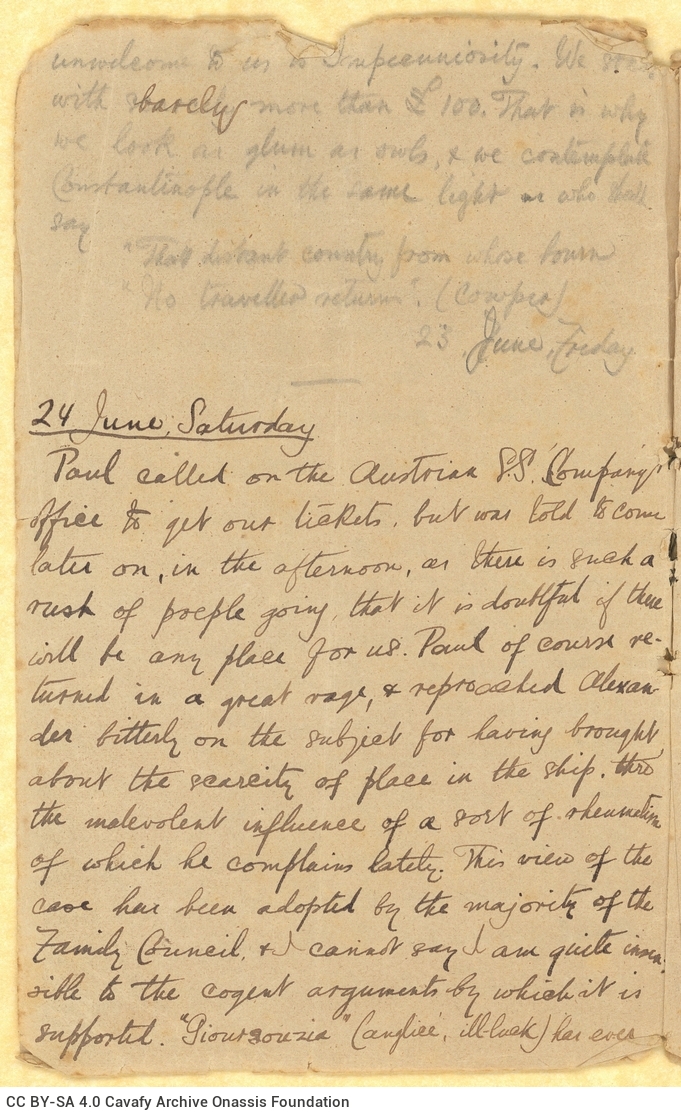 unwelcome to us is Impecuniosity. We start
with barely more than £ 100. That is why
we look as glum as owls, & we contemplate
Constantinople in the same light as who shall
say
"That distant country from whose bourn
"No traveller returns". (Cowper)
23 June, Friday
24 June, Saturday
Paul called on the Austrian S.S. Company's
office to get our tickets, but was told to come
later on, in the afternoon, as there is such a
rush of poeple going, that it is doubtful if there
will be any place for us. Paul of course re-
turned in a great rage, & reproached Alexan-
der bitterly on the subject for having brought
about the scarcity of place in the ship, thro
the malevolent influence of a sort of rheumatism
of which he complains lately. This view of the
case has been adopted by the majority of the
Family Council, & I cannot say I am quite insen-
sible to the cogent arguments by which it is
supported. "Gioursouzia" (anglicé, ill-luck) has ever
CC BY-SA 4.0 Cavafy Archive Onassis Foundation